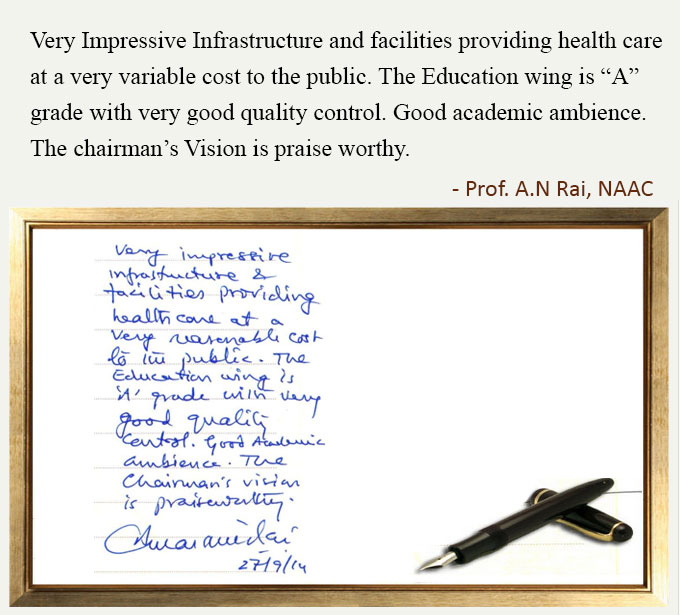 Very Impressive Infrastructure and facilities providing health care
at a very variable cost to the public. The Education wing is “A”
grade with very good quality control. Good academic ambience.
The chairman’s Vision is praise worthy.
- Prof. A.N Rai, NAAC
Very impressive
infrastructure &
facilities providing
health care at a
very reasonable cost
to the public. The
Education wing is
'A' grade with very
good quality
Control. Good Academic
ambience. The
Chairman's vision
is praiseworthy.
27/9/14